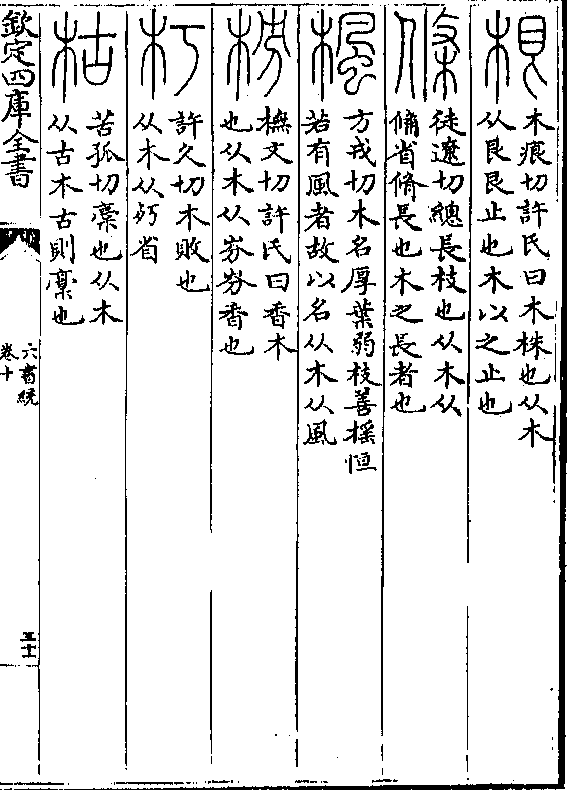 根
木痕切許氏曰木株也从木
从艮艮止也木以之止也
條
徒遼切總長枝也从木从
脩省脩長也木之長者也
楓
方戎切木名厚葉弱枝善搖恒
若有風者故以名从木从風
棻
撫文切許氏曰香木
也从木从芬芬香也
朽
許久切木敗也
从木从㱙省
枯
苦孤切槀也从木
从古木古則槀也
欽定四庫全書
六書統
卷十
三十